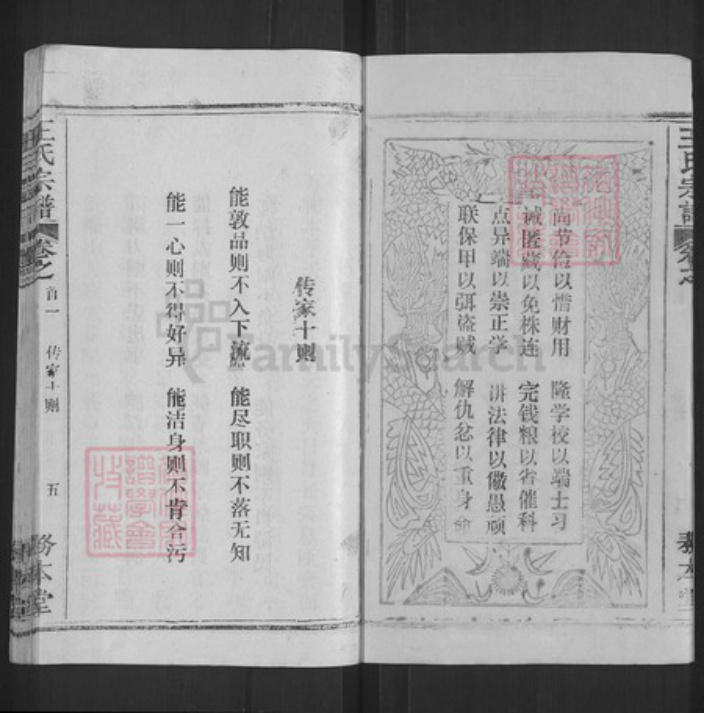 王氏宗谱
尚节俭以惜财用 隆学校以端士习
诫匿藏以免株连 完钱粮以省催科
点异端以崇正学 讲法律以儆愚顽
联保甲以弭盗贼 解仇忿以重身命
务本堂
传家十则
能敦品则不入下流 能尽职则不落无知
能一心则不得好异 能洁身则不肯合污
王氏宗谱
卷之首一
传家十则
五
务本堂
FamilySearch